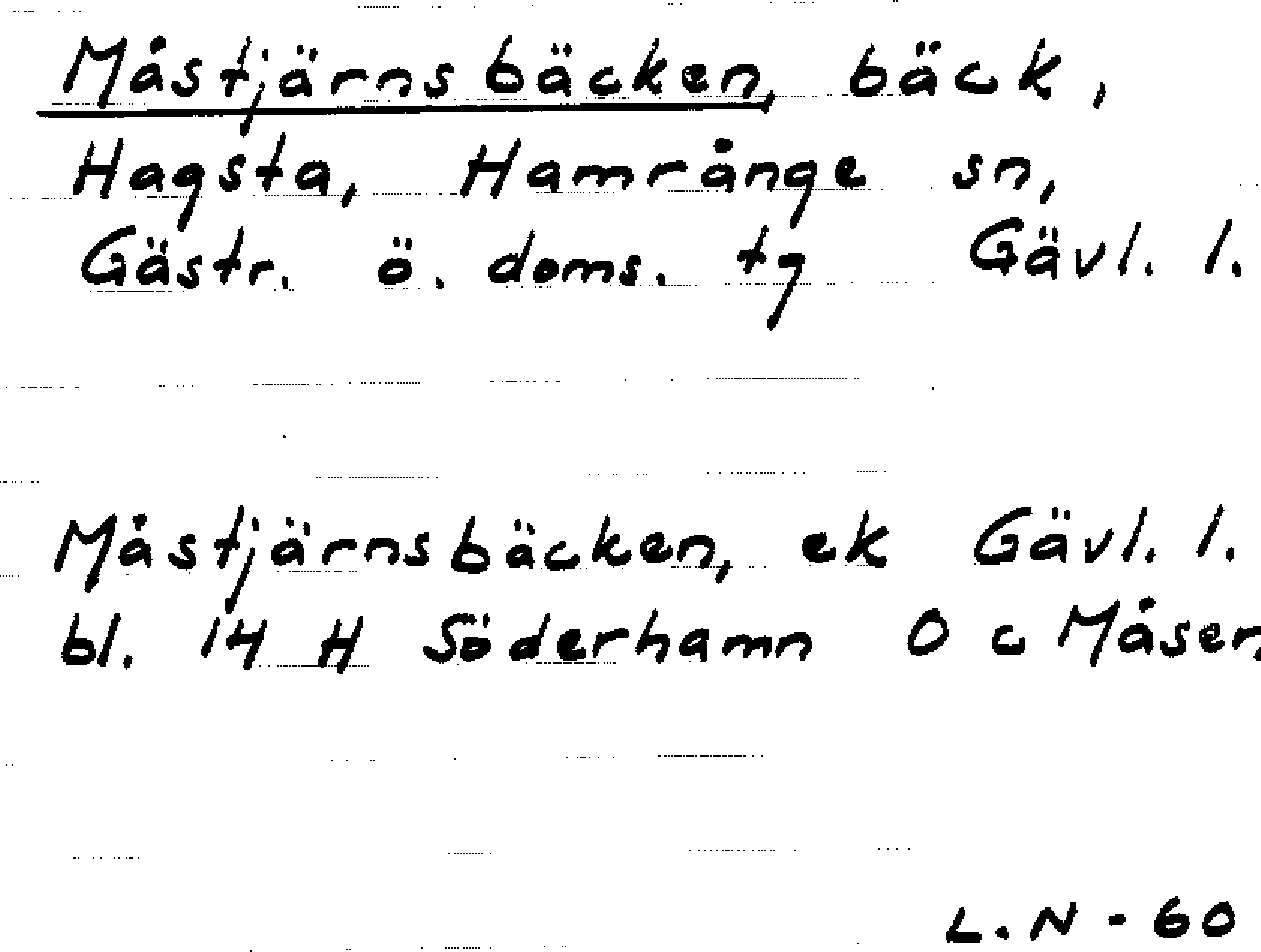 Måstjärnsbäcken, bäck,
Hagsta, Hamrånge sn,
Gästr. ö. doms. tg Gävl. l.
Måstjärnsbäcken, ek Gävl. l.
bl. 14 H Söderhamn O c Måsen
L.N - 60